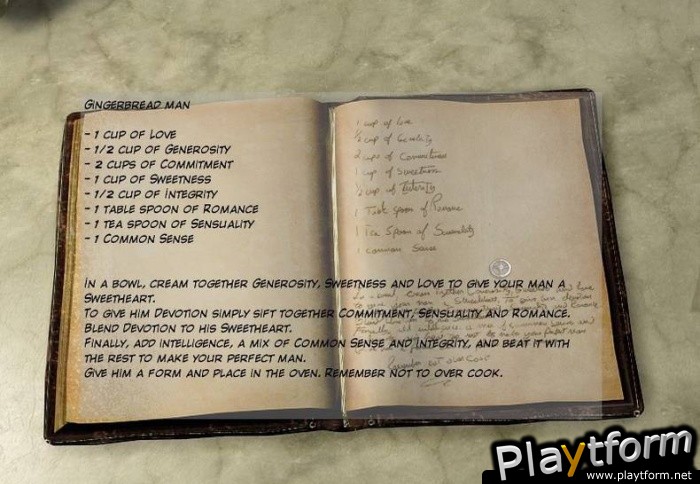 Gingerbread man
- 1 cup of Love
- 1/2 cup of Generosity
- 2 cups of Commitment
- 1 cup of Sweetness
- 1/2 cup of Integrity
- 1 table spoon of Romance
- 1 tea spoon of Sensuality
- 1 Common Sense
In a bowl, cream together Generosity, Sweetness and Love to give your man a
Sweetheart.
To give him Devotion simply sift together Commitment, Sensuality and Romance.
Blend Devotion to his Sweetheart.
Finally, add intelligence, a mix of Common Sense and Integrity, and beat it with
the rest to make your perfect man.
Give him a form and place in the oven. Remember not to over cook.
1 cup of Love
1/2 cup of Generosity
2 cups of Commitment
1 cup of Sweetness
1/2 cup of Integrity
1 Table spoon of Romance
1 Tea Spoon of Sensuality
1 Common Sense
Remember not over cook
Playtform
www.playtform.net